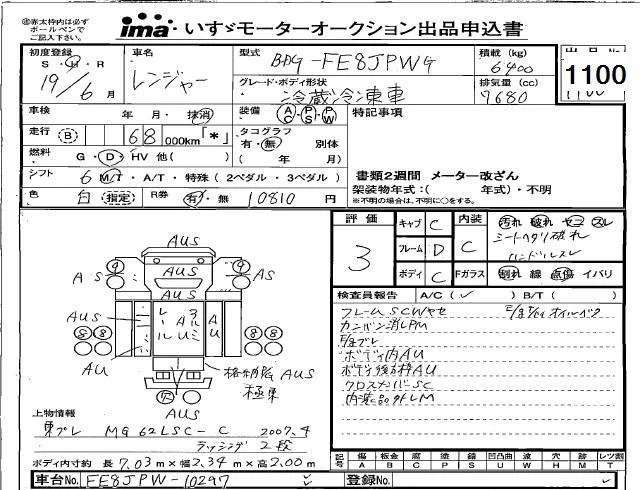 ※赤太枠内は必ず
ボールペンで
ご記入下さい。
ima いすゞモーターオークション出品申込書
初度登録
S・H・R
19/6月
車名
レンジャー
型式
BDG-FE8JPWG
グレード・ボディ形状
冷蔵冷凍車
積載 (kg)
6400
排気量 (cc)
7680
1100
車検 年・月・抹消
装備 AC PS PW
特記事項
走行 B 68 000km「*」
タコグラフ
有・無 別体
( 年 月)
燃料 G・D・HV 他( )
シフト 6 M/T・A/T・特殊 (2ペダル・3ペダル)
色 白 指定 R券 有・無 10810 円
書類2週間 メーター改ざん
架装物年式:( 年式)・不明
※不明の場合は、不明に○をする。
評価
3
キャブ C
フレーム D
ボディ C
内装 C
Fガラス
汚れ 破れ ヤニ スレ
シートヘタリ破れ
ハンドルスレ
割れ 線 点傷 イバリ
検査員報告 A/C(✓) B/T( )
フレームSCWヤセ
カンバン消しPM
ボディ内AU
ボディ後方枠AU
クロスメンバーSC
内装品外しM
AUS
9 AUS 9
AS AUS AS
AUS AUS
レール アルミ AU
8 8 8 8
AU AU
格納陥 AUS
極東
AUS
上物情報
東プレ MG62LSC-C 2007.4
ラッシング2段
ボディ内寸約 長7.03m×幅2.34m×高2.00m
記号 傷 板金 腐 塗 錆 凹凸曲 波 穴 跡 レツ割
A B C P S U W H M T
車台No. FE8JPW-10297 ✓
登録No. ✓